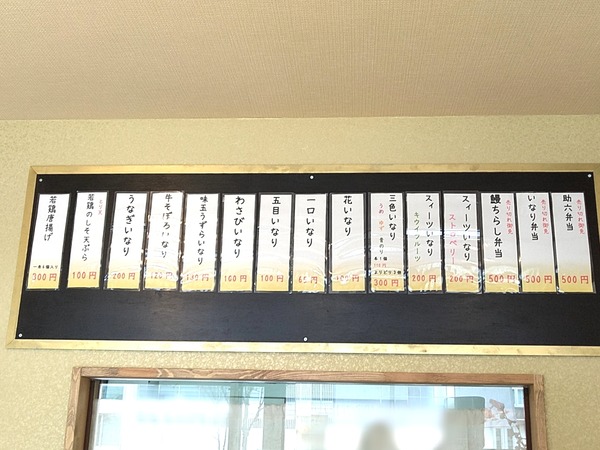 助六弁当
500円
売り切れ御免
いなり弁当
500円
売り切れ御免
鰻ちらし弁当
500円
スィーツいなり
ストロベリー
200円
スィーツいなり
キウイフルーツ
200円
三色いなり
300円
花いなり
100円
一口いなり
五目いなり
100円
わさびいなり
100円
味玉うずらいなり
牛そぼろいなり
うなぎいなり
200円
若鶏のしそ天ぷら
100円
若鶏唐揚げ
300円